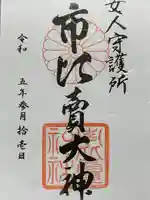 女人守護所
市比賣大神
令和五年参月拾壱日